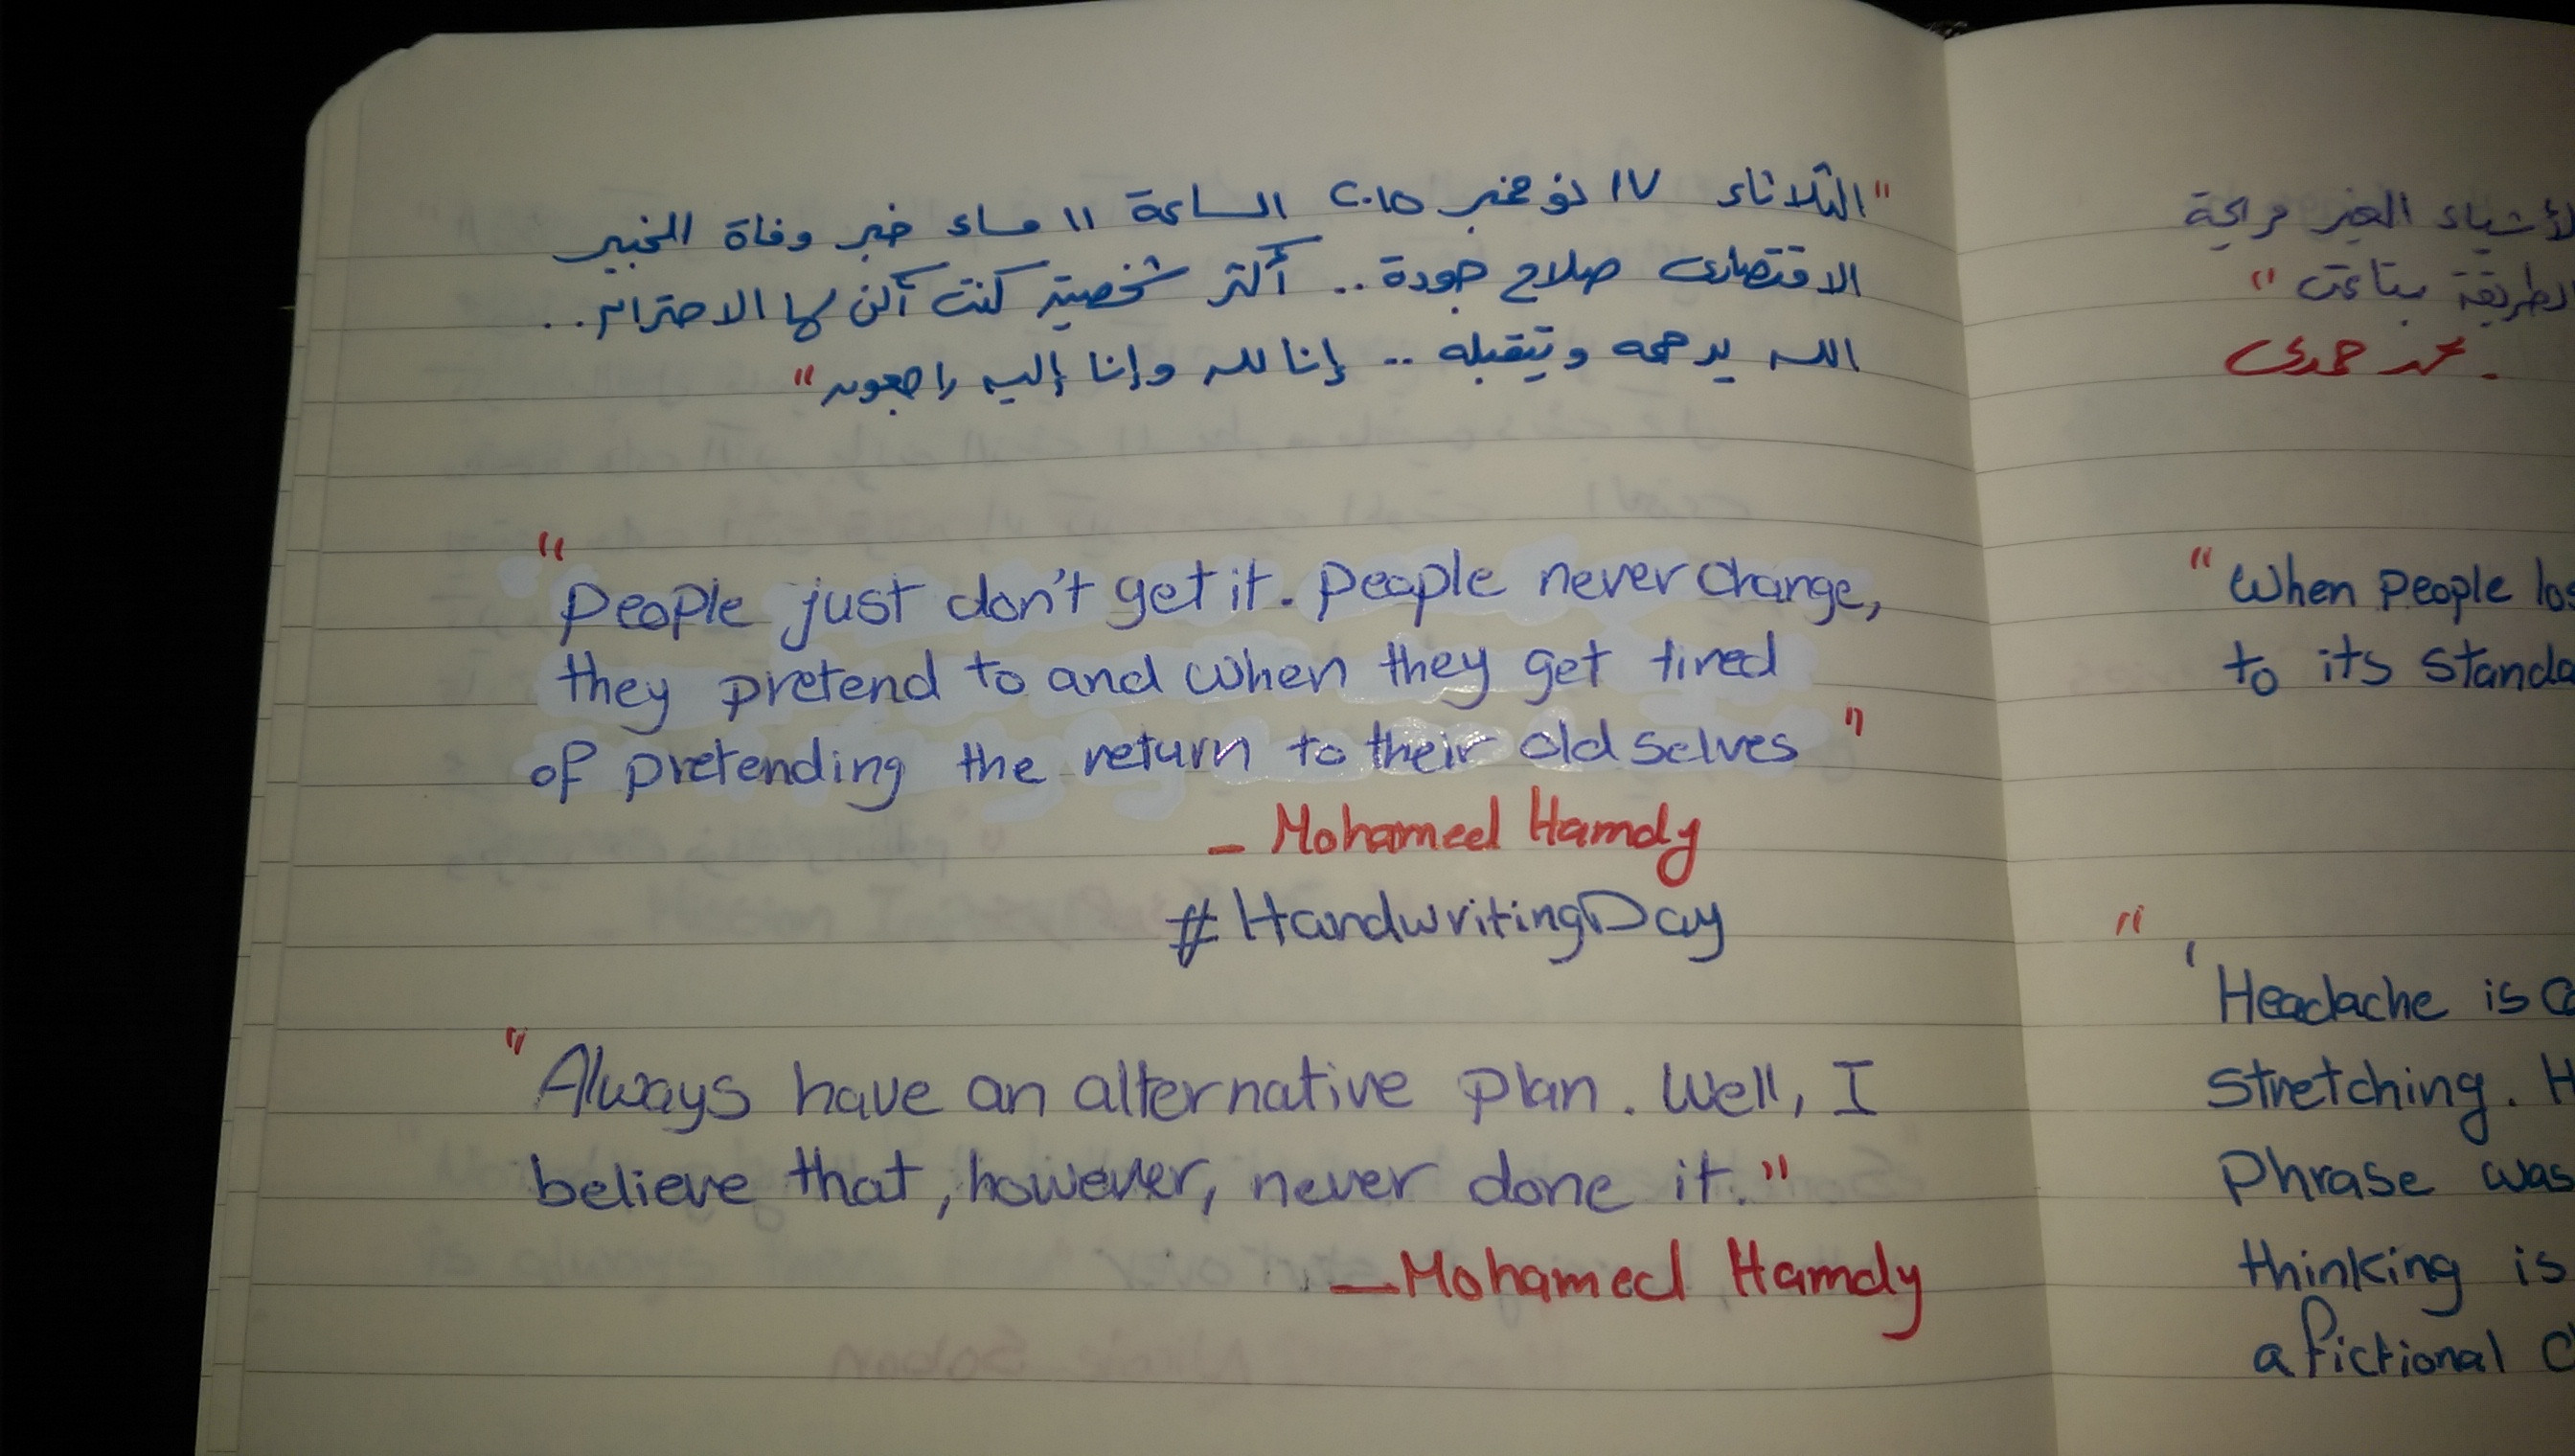 "الثلاثاء ١٧ نوفمبر ٢٠١٥ الساعة ١١ مساء خبر وفاة الخبير
الاقتصادى صلاح جودة .. أكتر شخصية كنت أكن لها الاحترام ..
الله يرحمه ويتقبله .. إنا لله وإنا إليه راجعون"
"People just don't get it. people never change,
they pretend to and when they get tired
of pretending the return to their old selves"
- Mohamed Hamdy
#HandwritingDay
"Always have an alternative plan. Well, I
believe that, however, never done it."
- Mohamed Hamdy
الأشياء الغير مريحة
الطريقة بتاعتى"
محمد حمدى -
"When people los
to its standa
"
'Headache is
stretching. H
Phrase was
thinking is
a fictional